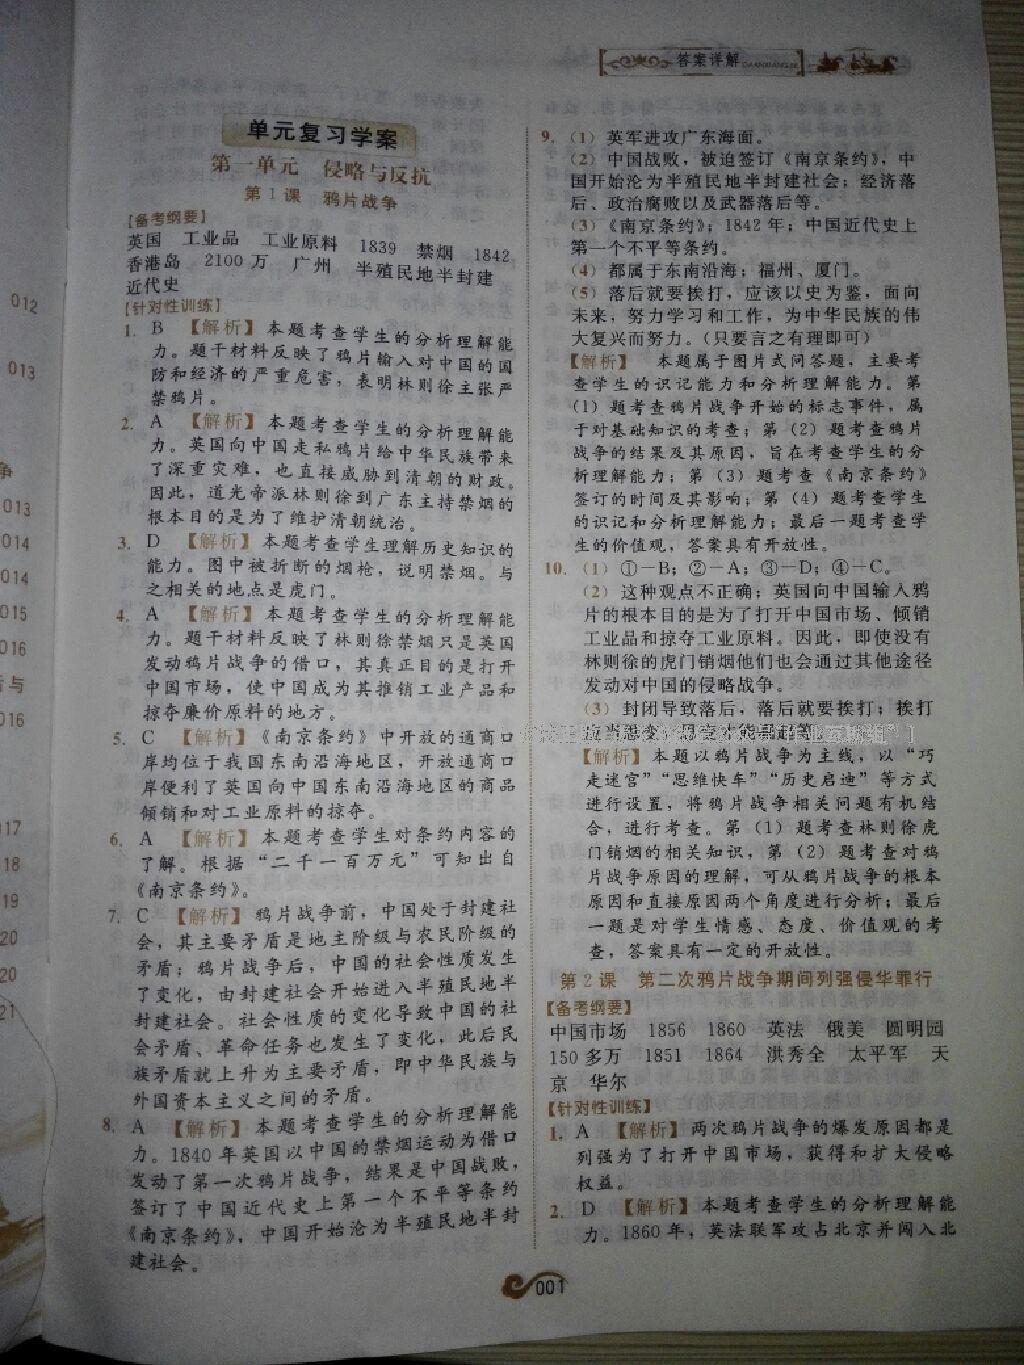 答案详解
DAANXIANGJIE
单元复习学案
第一单元 侵略与反抗
第1课 鸦片战争
【备考纲要】
英国 工业品 工业原料 1839 禁烟 1842
香港岛 2100万 广州 半殖民地半封建
近代史
【针对性训练】
1. B 【解析】本题考查学生的分析理解能
力。题干材料反映了鸦片输入对中国的国
防和经济的严重危害，表明林则徐主张严
禁鸦片。
2. A 【解析】本题考查学生的分析理解能
力。英国向中国走私鸦片给中华民族带来
了深重灾难，也直接威胁到清朝的财政。
因此，道光帝派林则徐到广东主持禁烟的
根本目的是为了维护清朝统治。
3. D 【解析】本题考查学生理解历史知识的
能力。图中被折断的烟枪，说明禁烟。与
之相关的地点是虎门。
4. A 【解析】本题考查学生的分析理解能
力。题干材料反映了林则徐禁烟只是英国
发动鸦片战争的借口，其真正目的是打开
中国市场，使中国成为其推销工业产品和
掠夺廉价原料的地方。
5. C 【解析】《南京条约》中开放的通商口
岸均位于我国东南沿海地区，开放通商口
岸便利了英国向中国东南沿海地区的商品
倾销和对工业原料的掠夺。
6. A 【解析】本题考查学生对条约内容的
了解。根据“二千一百万元”可知出自
《南京条约》。
7. C 【解析】鸦片战争前，中国处于封建社
会，其主要矛盾是地主阶级与农民阶级的
矛盾；鸦片战争后，中国的社会性质发生
了变化，由封建社会开始进入半殖民地半
封建社会。社会性质的变化导致中国的社
会矛盾、革命任务也发生了变化，此后民
族矛盾就上升为主要矛盾，即中华民族与
外国资本主义之间的矛盾。
8. A 【解析】本题考查学生的分析理解能
力。1840年英国以中国的禁烟运动为借口
发动了第一次鸦片战争，结果是中国战败，
签订了中国近代史上第一个不平等条约
《南京条约》，中国开始沦为半殖民地半封
建社会。
9. （1）英军进攻广东海面。
（2）中国战败，被迫签订《南京条约》，中
国开始沦为半殖民地半封建社会；经济落
后、政治腐败以及武器落后等。
（3）《南京条约》；1842年；中国近代史上
第一个不平等条约。
（4）都属于东南沿海；福州、厦门。
（5）落后就要挨打，应该以史为鉴，面向
未来，努力学习和工作，为中华民族的伟
大复兴而努力。（只要言之有理即可）
【解析】 本题属于图片式问答题，主要考
查学生的识记能力和分析理解能力。第
（1）题考查鸦片战争开始的标志事件，属
于对基础知识的考查；第（2）题考查鸦片
战争的结果及其原因，旨在考查学生的分
析理解能力；第（3）题考查《南京条约》
签订的时间及其影响；第（4）题考查学生
的识记和分析理解能力；最后一题考查学
生的价值观，答案具有开放性。
10. （1）①—B；②—A；③—D；④—C。
（2）这种观点不正确；英国向中国输入鸦
片的根本目的是为了打开中国市场、倾销
工业品和掠夺工业原料。因此，即使没有
林则徐的虎门销烟他们也会通过其他途径
发动对中国的侵略战争。
（3）封闭导致落后，落后就要挨打；挨打
【解析】本题以鸦片战争为主线，以“巧
走迷宫”“思维快车”“历史启迪”等方式
进行设置，将鸦片战争相关问题有机结
合，进行考查。第（1）题考查林则徐虎
门销烟的相关知识，第（2）题考查对鸦
片战争原因的理解，可从鸦片战争的根本
原因和直接原因两个角度进行分析；最后
一题是对学生情感、态度、价值观的考
查，答案具有一定的开放性。
第2课 第二次鸦片战争期间列强侵华罪行
【备考纲要】
中国市场 1856 1860 英法 俄美 圆明园
150多万 1851 1864 洪秀全 太平军 天
京 华尔
【针对性训练】
1. A 【解析】两次鸦片战争的爆发原因都是
列强为了打开中国市场，获得和扩大侵略
权益。
2. D 【解析】本题考查学生的分析理解能
力。1860年，英法联军攻占北京并闯入北
001
012
013
争
013
014
014
015
016
与
016
17
18
19
20
20
21